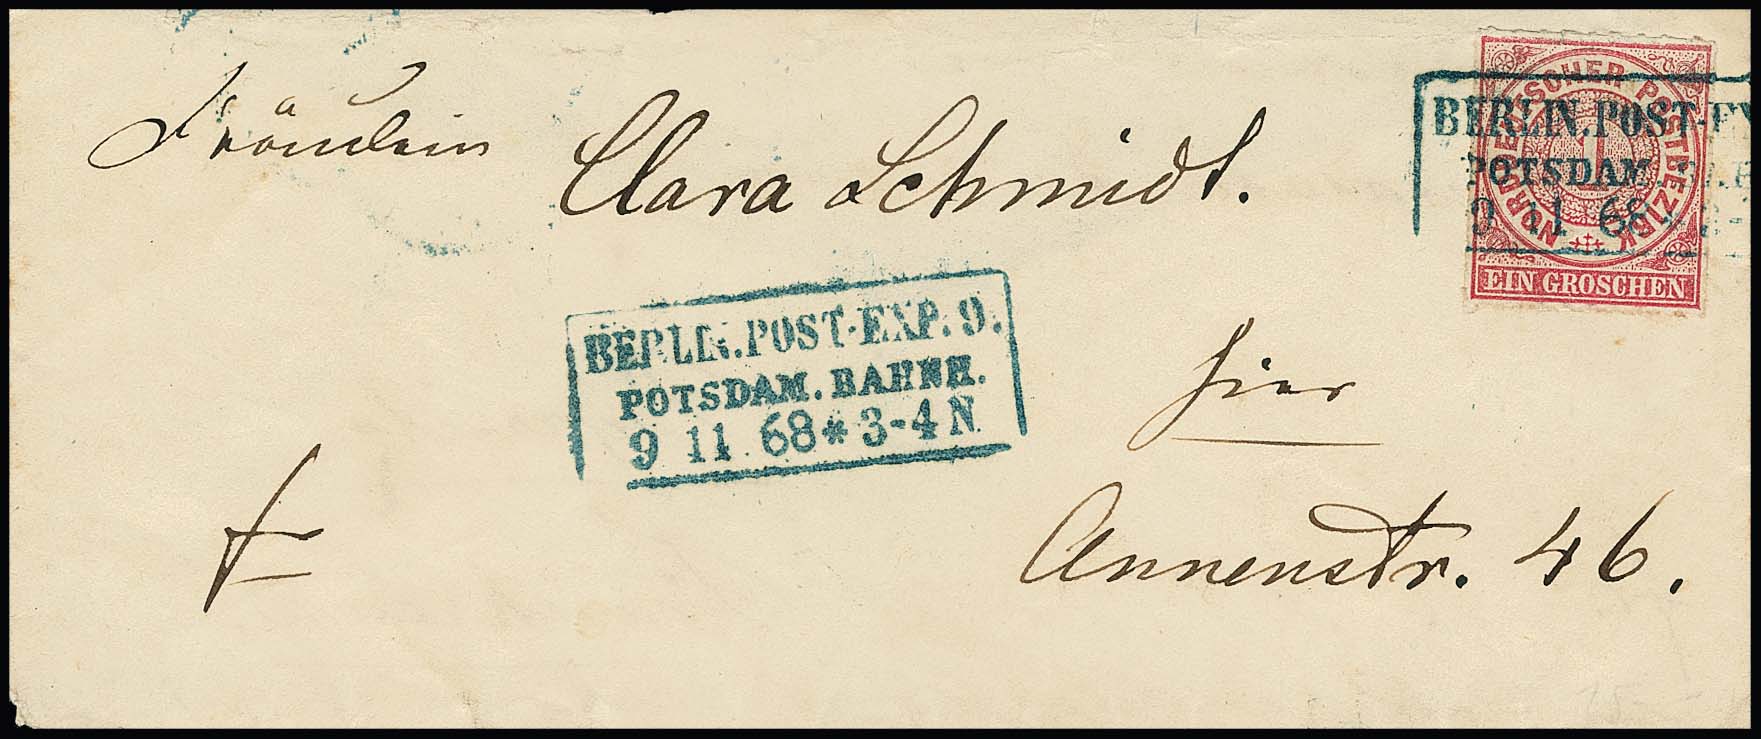 Fräulein Clara Schmidt.
NORDDEUTSCHER POSTBEZIRK
1
EIN GROSCHEN
BERLIN.POST-EX
POTSDAM.
9 11 68
BERLIN.POST-EXP. 9.
POTSDAM. BAHNH.
9 11 68 * 3-4 N
hier
f
Annenstr. 46.